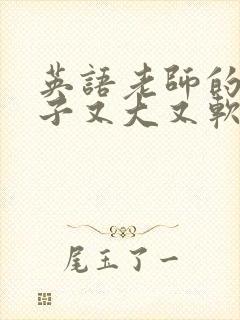 英語老師的
子又大又軟
尾玉了一